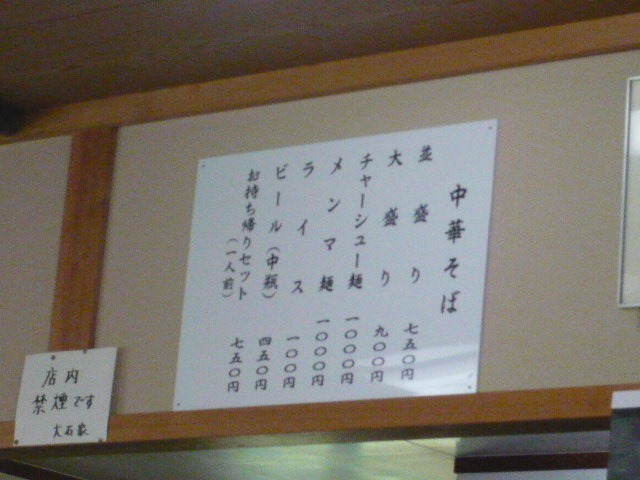 中華そば
並盛り 七五〇円
大盛り 九〇〇円
チャーシュー麺 一〇〇〇円
メンマ麺 一〇〇〇円
ライス 一〇〇円
ビール（中瓶） 四五〇円
お持ち帰りセット（一人前） 七五〇円
店内
禁煙です
大石家